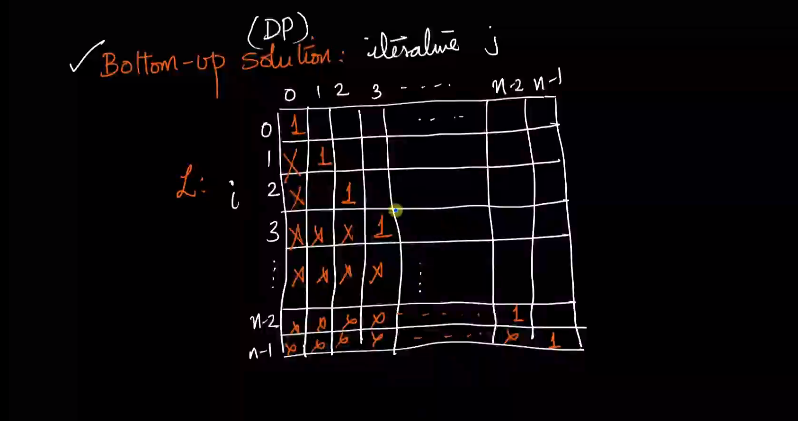 (DP)
✓ Bottom-up solution: iterative j
0 1 2 3 - - - - n-2 n-1
0 1 - - - -
1 X 1
L: i 2 X 1
3 X X X 1
⋮ X X X X ⋮
n-2 X X X X - - - - 1
n-1 X X X X - - - - X 1